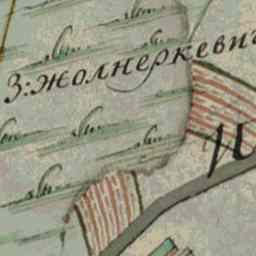 З:жолнеркевич